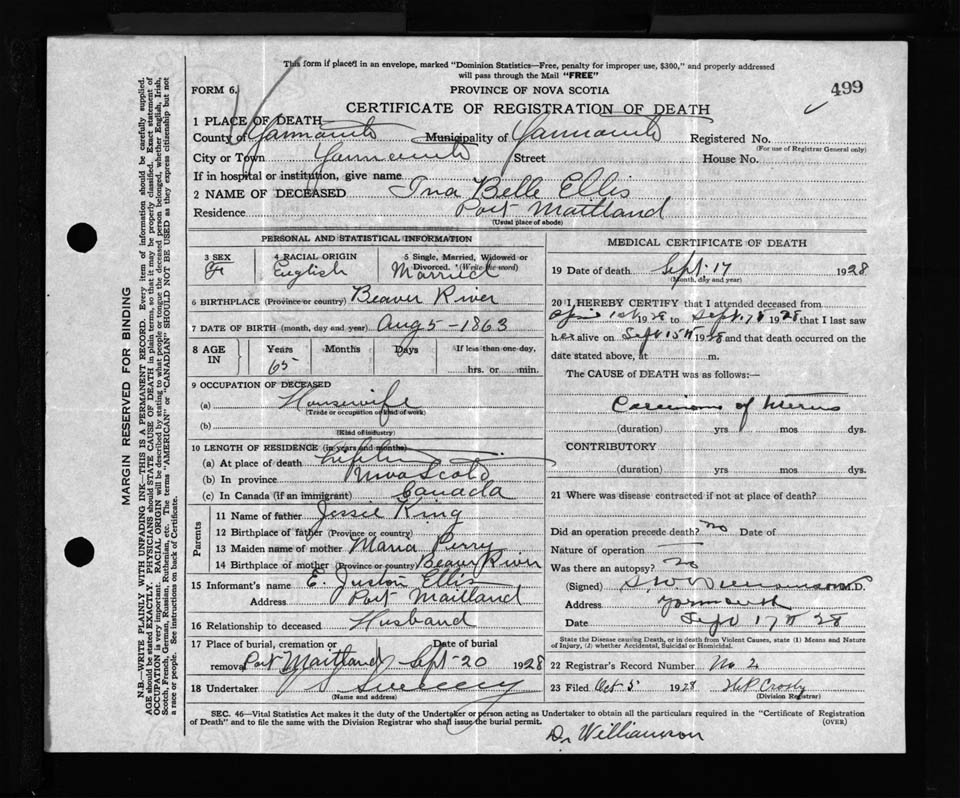 This form if placed in an envelope, marked "Dominion Statistics—Free, penalty for improper use, $300," and properly addressed
will pass through the Mail "FREE"
FORM 6.
PROVINCE OF NOVA SCOTIA
499
CERTIFICATE OF REGISTRATION OF DEATH
1 PLACE OF DEATH
County of Yarmouth Municipality of Yarmouth Registered No.
(For use of Registrar General only)
City or Town Yarmouth Street House No.
If in hospital or institution, give name
2 NAME OF DECEASED Ina Belle Ellis
Residence Port Maitland
(Usual place of abode)
PERSONAL AND STATISTICAL INFORMATION
3 SEX 4 RACIAL ORIGIN 5 Single, Married, Widowed or
Divorced. (Write the word)
F English Married
6 BIRTHPLACE (Province or country) Beaver River
7 DATE OF BIRTH (month, day and year) Aug 5 - 1863
8 AGE IN Years Months Days If less than one day,
65 hrs. or min.
9 OCCUPATION OF DECEASED
(a) Housewife
(Trade or occupation or kind of work)
(b)
(Kind of industry)
10 LENGTH OF RESIDENCE (in years and months)
(a) At place of death
(b) In province Nova Scotia
(c) In Canada (if an immigrant) Canada
Parents
11 Name of father Jessie King
12 Birthplace of father (Province or country)
13 Maiden name of mother Maria Perry
14 Birthplace of mother (Province or country) Beaver River
15 Informant's name E. Juston Ellis
Address Port Maitland
16 Relationship to deceased Husband
17 Place of burial, cremation or Date of burial
removal Port Maitland Sept - 20 1928
18 Undertaker Sweeny
(Name and address)
MEDICAL CERTIFICATE OF DEATH
19 Date of death Sept. 17 1928
(Month, day and year)
20 I HEREBY CERTIFY that I attended deceased from
April 1st 1928 to Sept 17th 1928 that I last saw
her alive on Sept 15th 1928 and that death occurred on the
date stated above, at m.
The CAUSE of DEATH was as follows:—
Carcinoma of Uterus
(duration) yrs mos dys.
CONTRIBUTORY
(duration) yrs. mos dys.
21 Where was disease contracted if not at place of death?
Did an operation precede death? no Date of
Nature of operation
Was there an autopsy? No
(Signed) S. W. Williamson M.D.
Address Yarmouth
Date Sept 17th 28
State the Disease causing Death, or in death from Violent Causes, state (1) Means and Nature
of Injury, (2) whether Accidental, Suicidal or Homicidal.
22 Registrar's Record Number No 2
23 Filed Oct 5 1928 H.P. Crosby
(Division Registrar)
SEC. 46—Vital Statistics Act makes it the duty of the Undertaker or person acting as Undertaker to obtain all the particulars required in the "Certificate of Registration
of Death" and to file the same with the Division Registrar who shall issue the burial permit. (OVER)
Dr Williamson
MARGIN RESERVED FOR BINDING
N.B.—WRITE PLAINLY WITH UNFADING INK—THIS IS A PERMANENT RECORD. Every item of information should be carefully supplied.
AGE should be stated EXACTLY. PHYSICIANS should STATE CAUSE OF DEATH in plain terms, so that it may be properly classified. Exact statement of
OCCUPATION is very important. RACIAL ORIGIN will be described by stating to what people or tongue the deceased person belonged, whether English, Irish,
Scotch, French, German, Russian, Ruthenian, etc. The terms "AMERICAN" or "CANADIAN" SHOULD NOT BE USED as they express citizenship but not
a race or people. See instructions on back of Certificate.